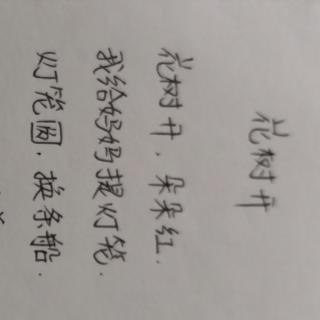 花树开
花树开，朵朵红.
我给妈妈提灯笼.
灯笼圆，换条船.